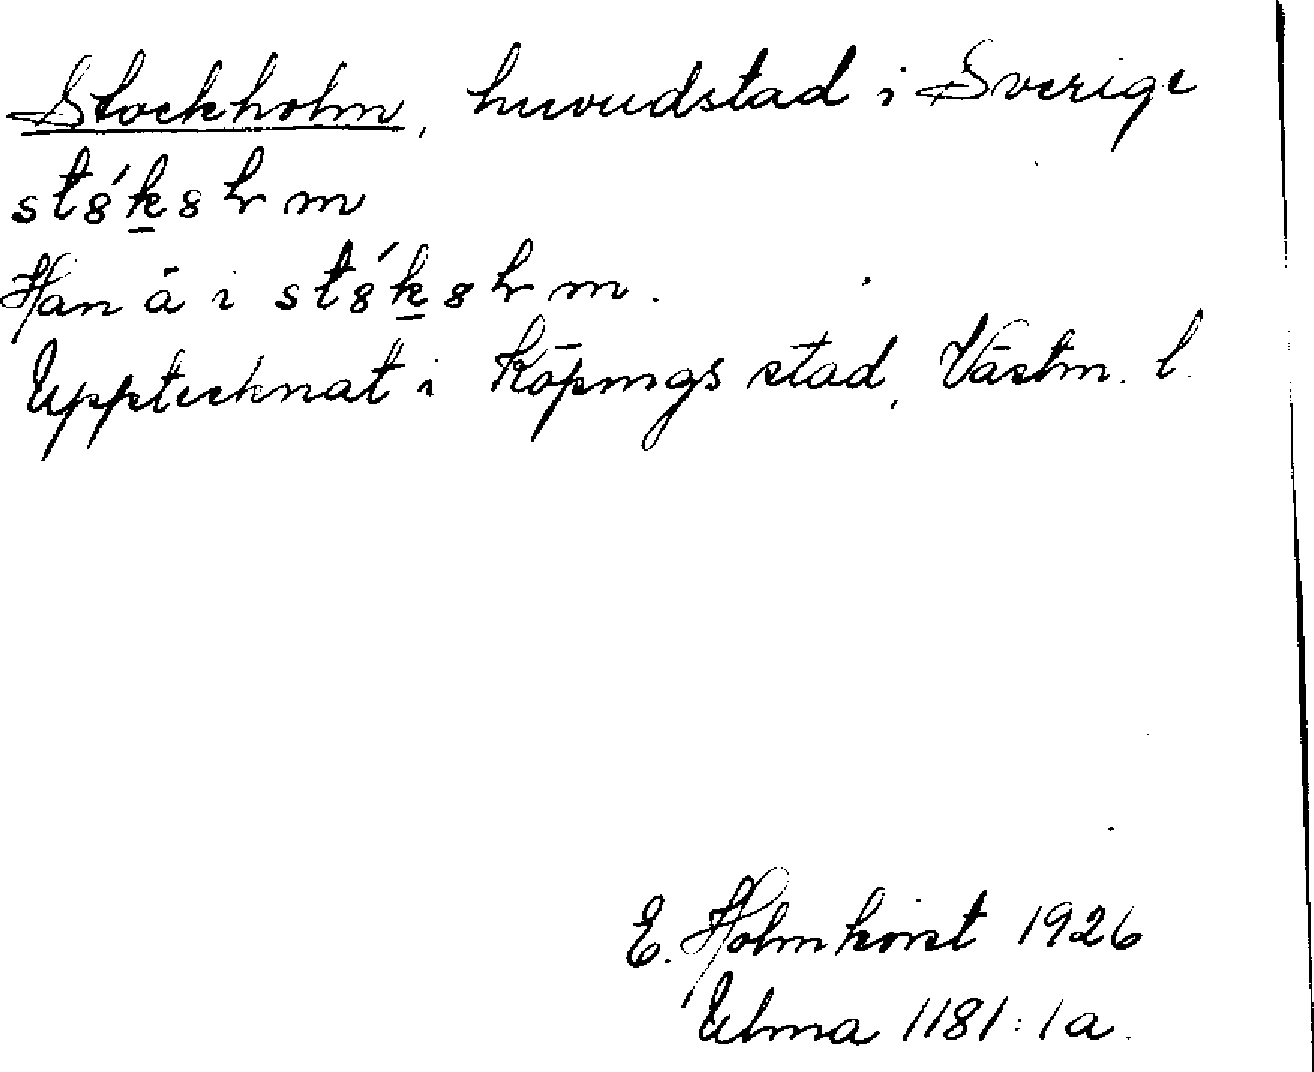 Stockholm, huvudstad i Sverige
st8́k8hm
Han ä i st8́k8hm.
Upptecknat i Köpings stad, Västm. l.
E. Holmkvist 1926
Ulma 1181:1a.